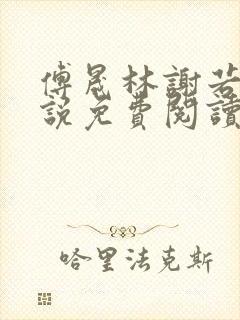 傅晟林謝若
說免費閱讀
哈里法克斯